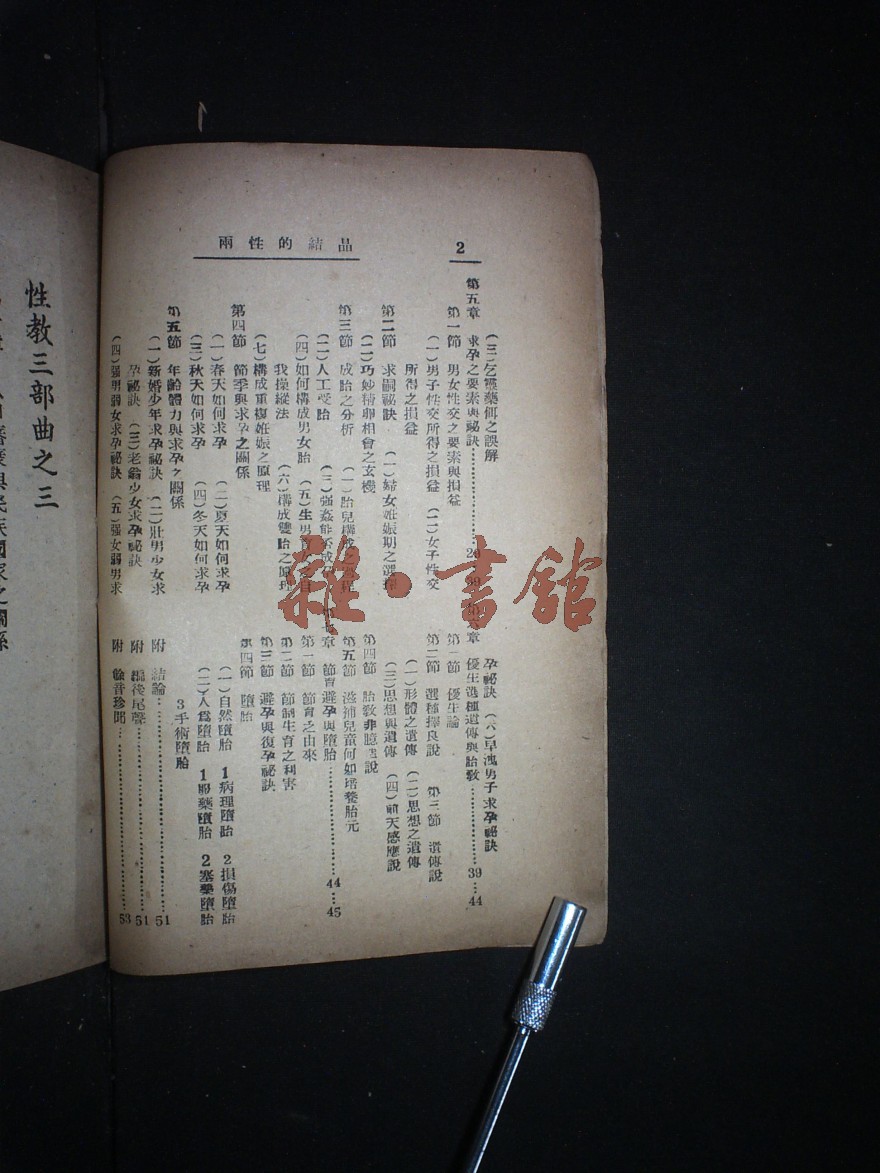 2
兩性的結晶
（三）乞靈藥餌之誤解
第五章 求孕之要素與祕訣
第一節 男女性交之要素與損益
（一）男子性交所得之損益 （二）女子性交
所得之損益
第二節 求嗣祕訣 （一）婦女姙娠期之選擇
（二）巧妙精卵相會之玄機
第三節 成胎之分析 （一）胎兒構成之
（二）人工受胎 （三）强姦能否成
（四）如何構成男女胎 （五）生男育女之自
我操縱法 （六）構成雙胎之原理
（七）構成重複姙娠之原理
第四節 節季與求孕之關係
（一）春天如何求孕 （二）夏天如何求孕
（三）秋天如何求孕 （四）冬天如何求孕
第五節 年齡體力與求孕之關係
（一）新婚少年求孕祕訣 （二）壯男少女求
孕祕訣 （三）老翁少女求孕祕訣
（四）强男弱女求孕祕訣 （五）强女弱男求
孕祕訣 （六）早洩男子求孕祕訣
第六章 優生選種遺傳與胎敎 39…44
第一節 優生論
第二節 選種擇良說 第三節 遺傳說
（一）形體之遺傳 （二）思想之遺傳
（三）思想與遺傳 （四）前天感應說
第四節 胎敎非臆說
第五節 滋補兒童何如培養胎元
第七章 節育避孕與墮胎 44…45
第一節 節育之由來
第二節 節制生育之利害
第三節 避孕與復孕祕訣
第四節 墮胎
（一）自然墮胎 1病理墮胎 2損傷墮胎
（二）人爲墮胎 1服藥墮胎 2塞藥墮胎
3手術墮胎
附 結論 51
附 編後尾聲 51
附 餘音珍聞 53
性教三部曲之三
雜·書館